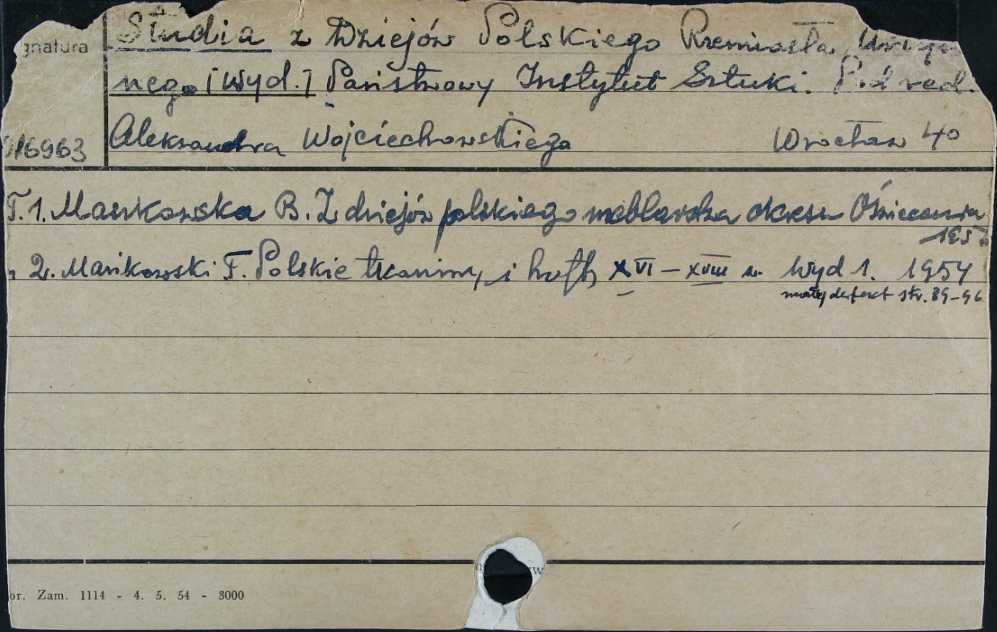 gnatura
Studia z Dziejów Polskiego Rzemiosła
nego [wyd.] Państwowy Instytut Sztuki. Pod red.
16963 Aleksandra Wojciechowskiego Wrocław 40
T. 1. Maszkowska B. Z dziejów polskiego meblarstwa okresu Oświecenia
195
" 2. Mańkowski T. Polskie tkaniny i hafty XVI – XVIII w. Wyd 1. 1954
defect str. 89–96
or. Zam. 1114 - 4. 5. 54 - 3000